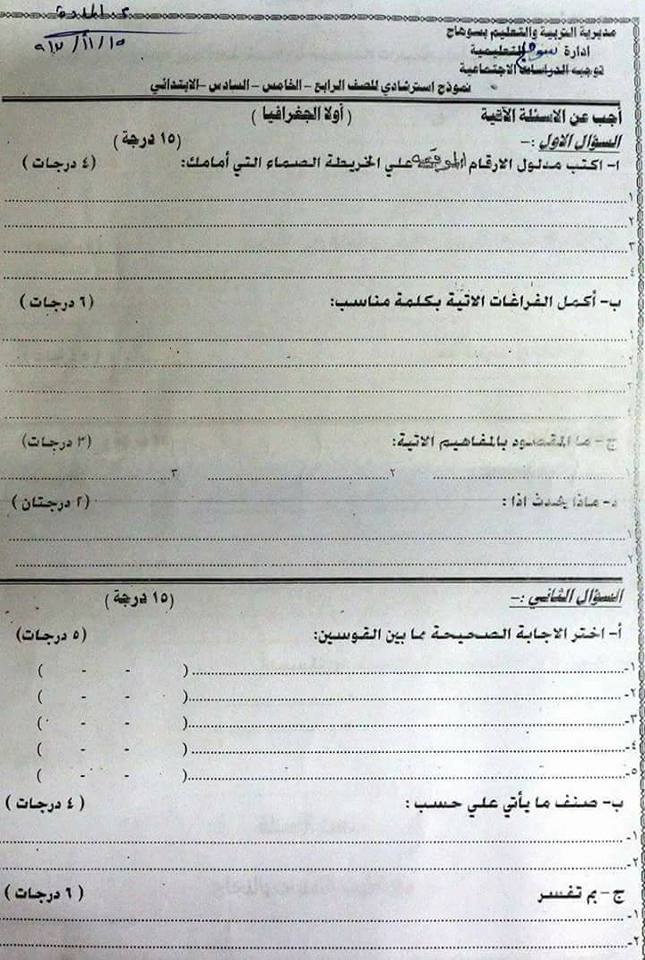 مديرية التربية والتعليم بسوهاج
ادارة سوهاج التعليمية
توجيه الدراسات الاجتماعية
٩١٧/١١/١٥
نموذج استرشادي للصف الرابع - الخامس - السادس - الابتدائي
أجب عن الاسئلة الآتية (أولا الجغرافيا)
السؤال الاول :- (١٥ درجة)
ا- اكتب مدلول الارقام الموقعة علي الخريطة الصماء التي أمامك: (٤ درجات)
١
٢
٣
٤
ب- أكمل الفراغات الاتية بكلمة مناسب: (٦ درجات)
١
٢
٣
٤
ج- ما المقصود بالمفاهيم الاتية: (٣ درجات)
١ ٢ ٣
د- ماذا يحدث اذا : (٢ درجتان)
١
٢
السؤال الثاني :- (١٥ درجة)
أ- اختر الاجابة الصحيحة مما بين القوسين: (٥ درجات)
١- ( - - )
٢- ( - - )
٣- ( - - )
٤- ( - - )
٥- ( - - )
ب- صنف ما يأتي علي حسب : (٤ درجات)
١-
٢-
ج- بم تفسر (٦ درجات)
١-
٢-